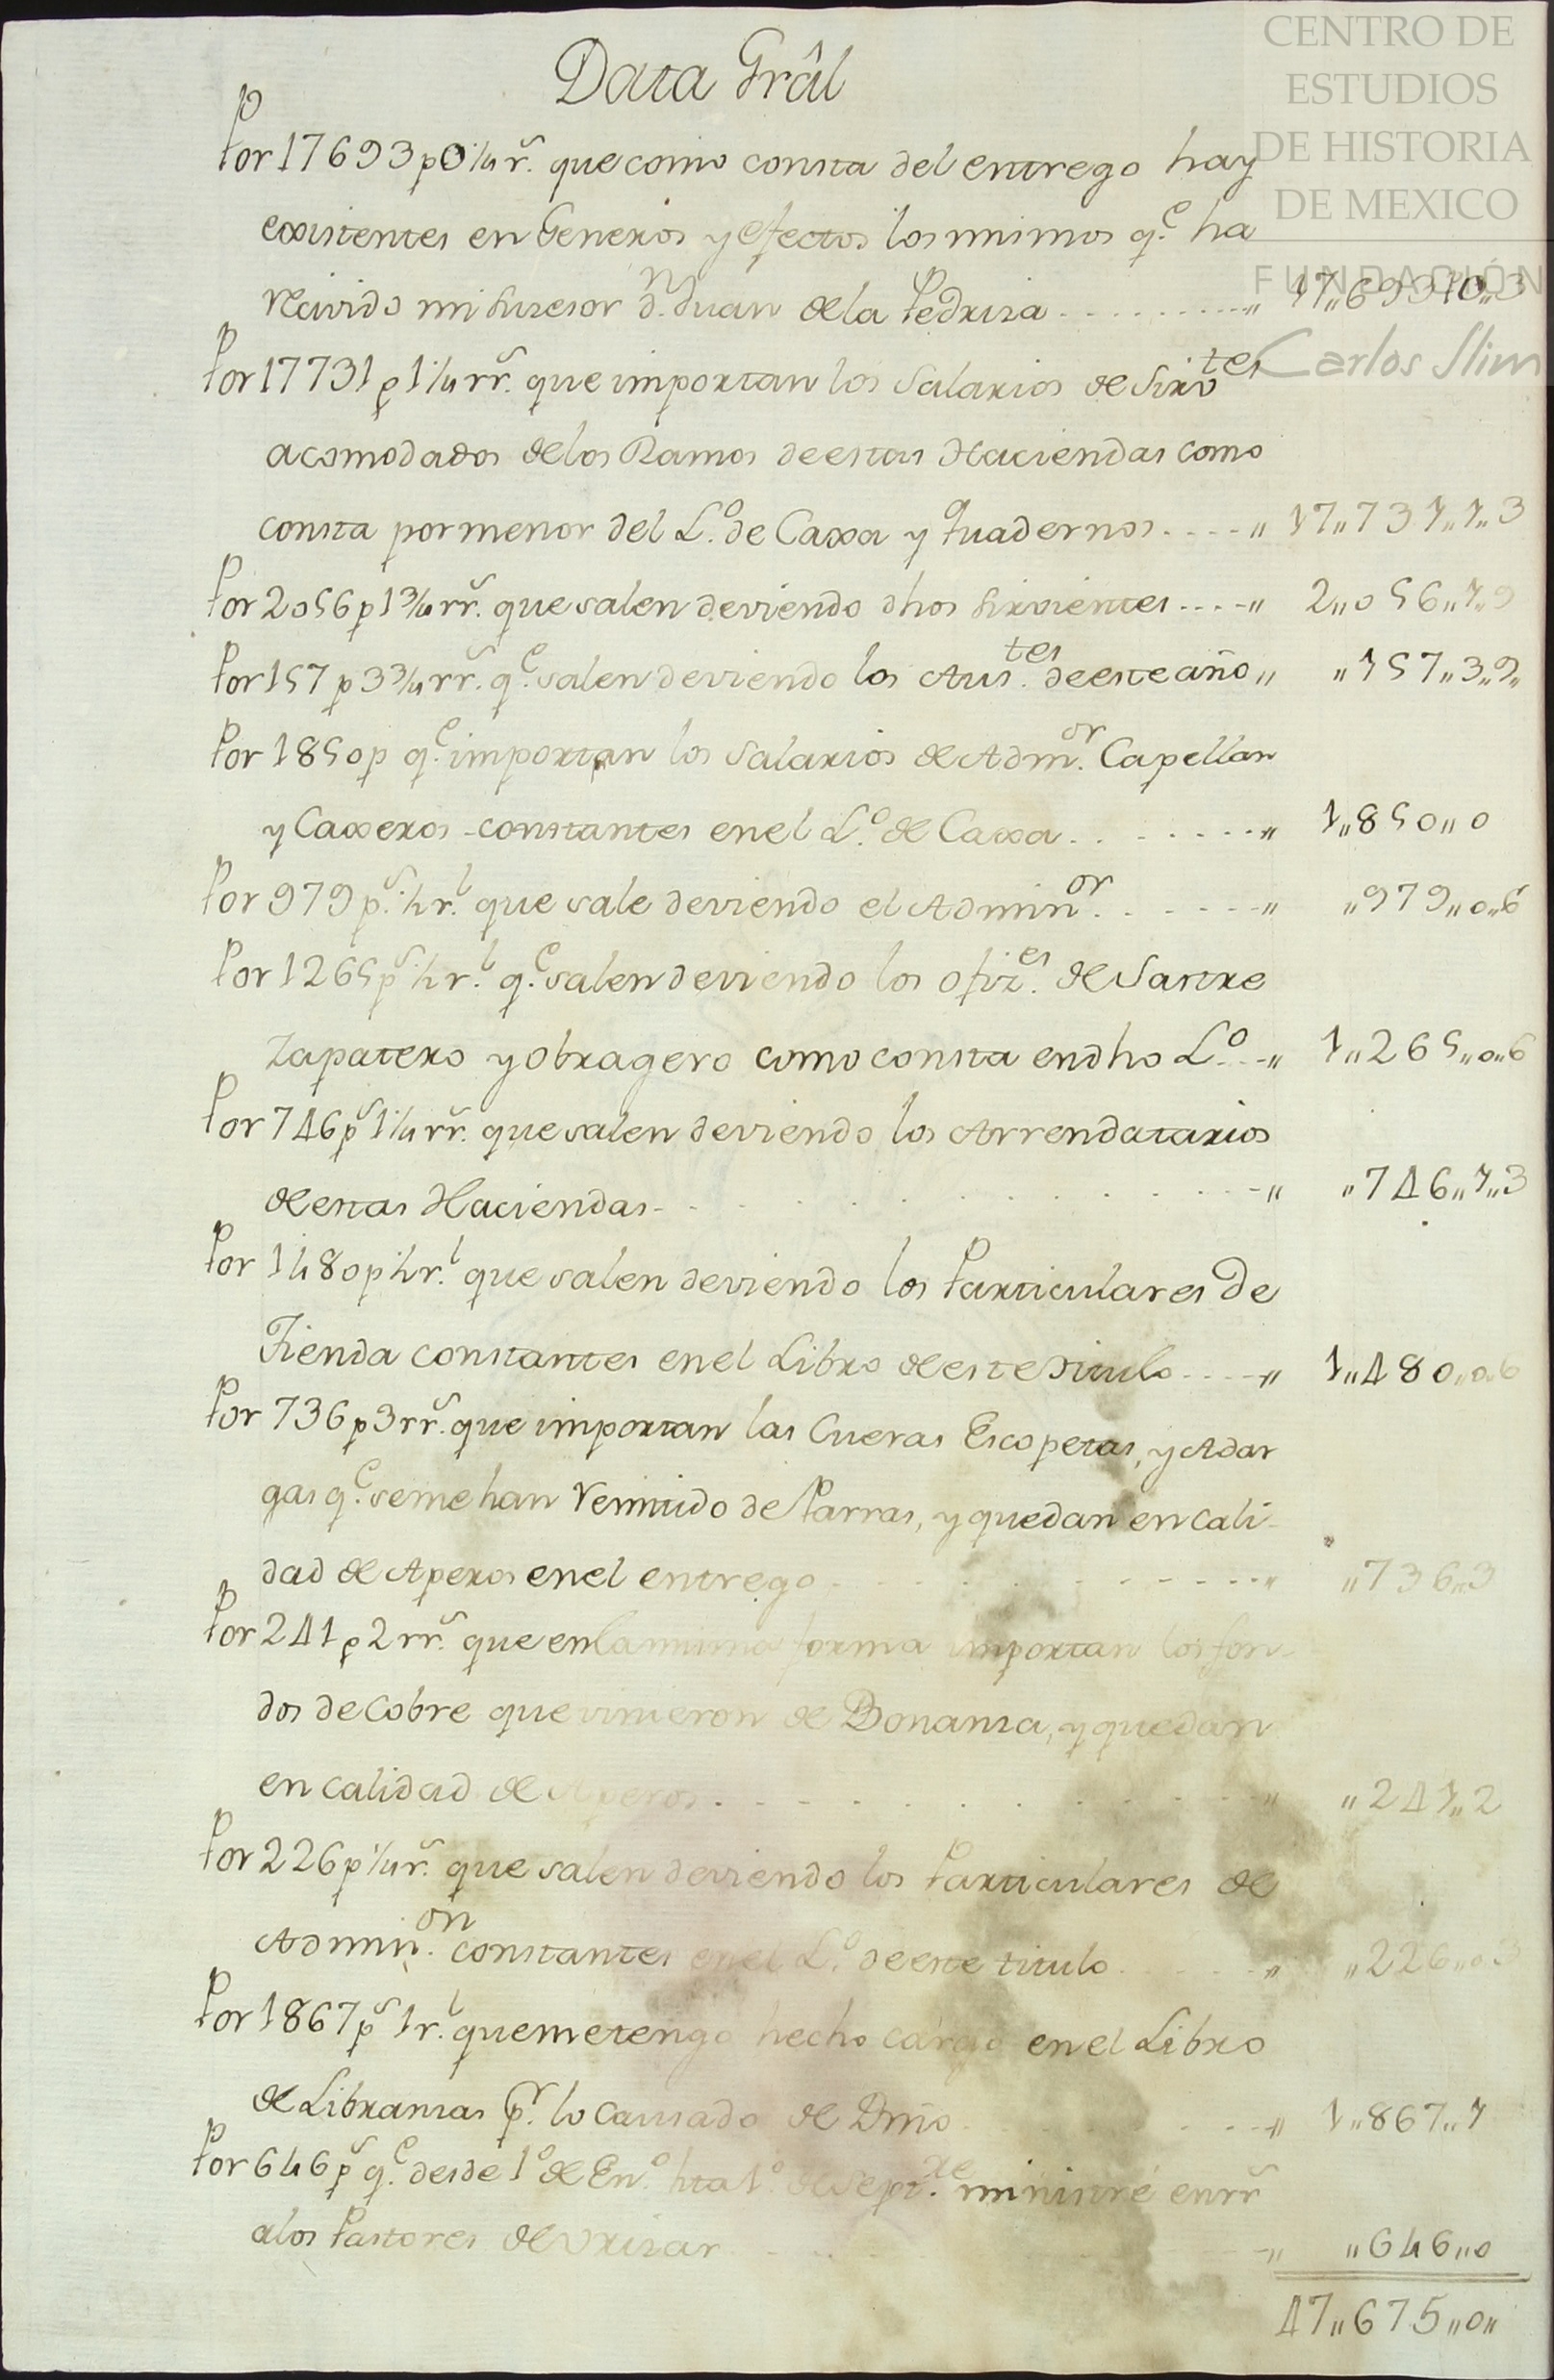 CENTRO DE
ESTUDIOS
DE HISTORIA
DE MEXICO
FUNDACIÓN
Carlos Slim
Data Grâl
Por 17693 p 0¼ rs. que como consta del entrego hay
existentes en Generos y efectos los mismos qe. ha
recivido mi Susesor Dn. Juan de la Pedriza ........ „ 17„693„0„3
Por 17731 p 1¼ rrs. que importan los Salarios de Sirvtes
acomodados de los Ramos de estas Haciendas como
consta por menor del Lo. de Caxa y Quadernos .... „ 17„731„1„3
Por 2056 p 1¾ rrs. que salen deviendo dhos Sirvientes .... „ 2„056„1„9
Por 157 p 3¾ rrs. qe. salen deviendo los Austes. de este año „ „157„3„9„
Por 1850 p qe. importan los Salarios de Admor. Capellan
y Caxeros constantes en el Lo. de Caxa ....... „ 1„850„0
Por 979 ps. ½ rl. que sale deviendo el Adminor. ...... „ „979„0„6
Por 1265 ps. ½ rl. qe. salen deviendo los ofizes. de Sastre
Zapatero y obragero como consta en dho Lo. ... „ 1„265„0„6
Por 746 ps. 1¼ rrs. que salen deviendo los Arrendatarios
de estas Haciendas ........... „ „746„1„3
Por 1480 p ½ rl. que salen deviendo los Particulares De
Tienda constantes en el Libro de este Titulo .... „ 1„480„0„6
Por 736 p 3 rrs. que importan las Cueras Escopetas, y Adar
gas qe. se me han Remitido de Parras, y quedan en cali-
dad de Aperos en el entrego .......... „ „736„3
Por 241 p 2 rrs. que en la misma forma importan los fon-
dos de Cobre que vinieron de Bonanza, y quedan
en calidad de Aperos .......... „ „241„2
Por 226 p ¼ rs. que salen deviendo los Particulares de
Adminon. constantes en el Lo. de este titulo ...... „ „226„0„3
Por 1867 ps. 1 rl. que me tengo hecho cargo en el Libro
de Libranzas pr. lo Causado de Dmo ....... „ 1„867„1
Por 646 ps. qe. desde 1o. de Eno. hta 1o. de Sepre. ministré en rrs
a los Pastores de ....... „ „646„0
47„675„0„